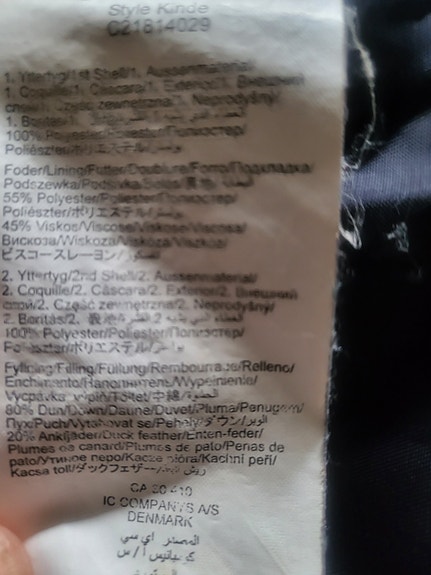 Style Kinde
C21814029
1. Yttertyg/1st Shell/1. Aussenmaterial/
1. Coquille/1. Cáscara/1. Exterior/1. Внешний
слой/1. Część zewnętrzna/1. Neprodyšný/
1. Borítás/1.
100% Polyester/Poliester/Полиэстер/
Poliészter/ポリエステル/
Foder/Lining/Futter/Doublure/Forro/Подкладка/
Podszewka/Podšívka/Bélés/裏地/
55% Polyester/Poliester/Полиэстер/
Poliészter/ポリエステル/
45% Viskos/Viscose/Viskose/Viscosa/
Вискоза/Wiskoza/Viskóza/Viszkóz/
ビスコースレーヨン/
2. Yttertyg/2nd Shell/2. Aussenmaterial/
2. Coquille/2. Cáscara/2. Exterior/2. Внешний
слой/2. Część zewnętrzna/2. Neprodyšný/
2. Borítás/2.
100% Polyester/Poliester/Полиэстер/
Poliészter/ポリエステル/
Fyllning/Filling/Füllung/Rembourrage/Relleno/
Enchimento/Наполнитель/Wypełnienie/
Vycpávka/中綿/
80% Dun/Down/Daune/Duvet/Pluma/Penugem/
Пух/Puch/Vytahovat se/Pehely/ダウン/الوبر/
20% Ankfjäder/Duck feather/Enten-feder/
Plumes de canard/Plumas de pato/Penas de
pato/Утиное перо/Kacze pióra/Kachní peří/
Kacsa toll/ダックフェザー/ريش بط
CA 30 410
IC COMPANYS A/S
DENMARK
المصدر اي سي